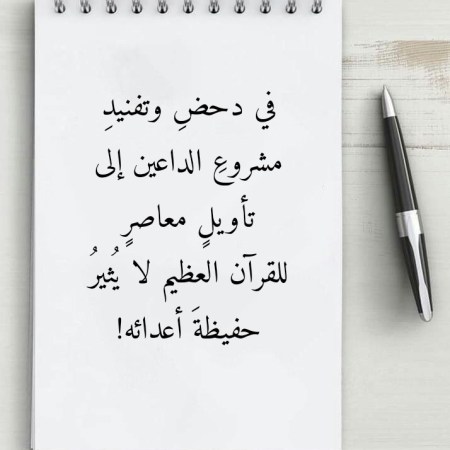 في دحضِ وتفنيدِ
مشروعِ الداعين إلى
تأويلٍ معاصرٍ
للقرآن العظيم لا يُثيرُ
حفيظةَ أعدائه!